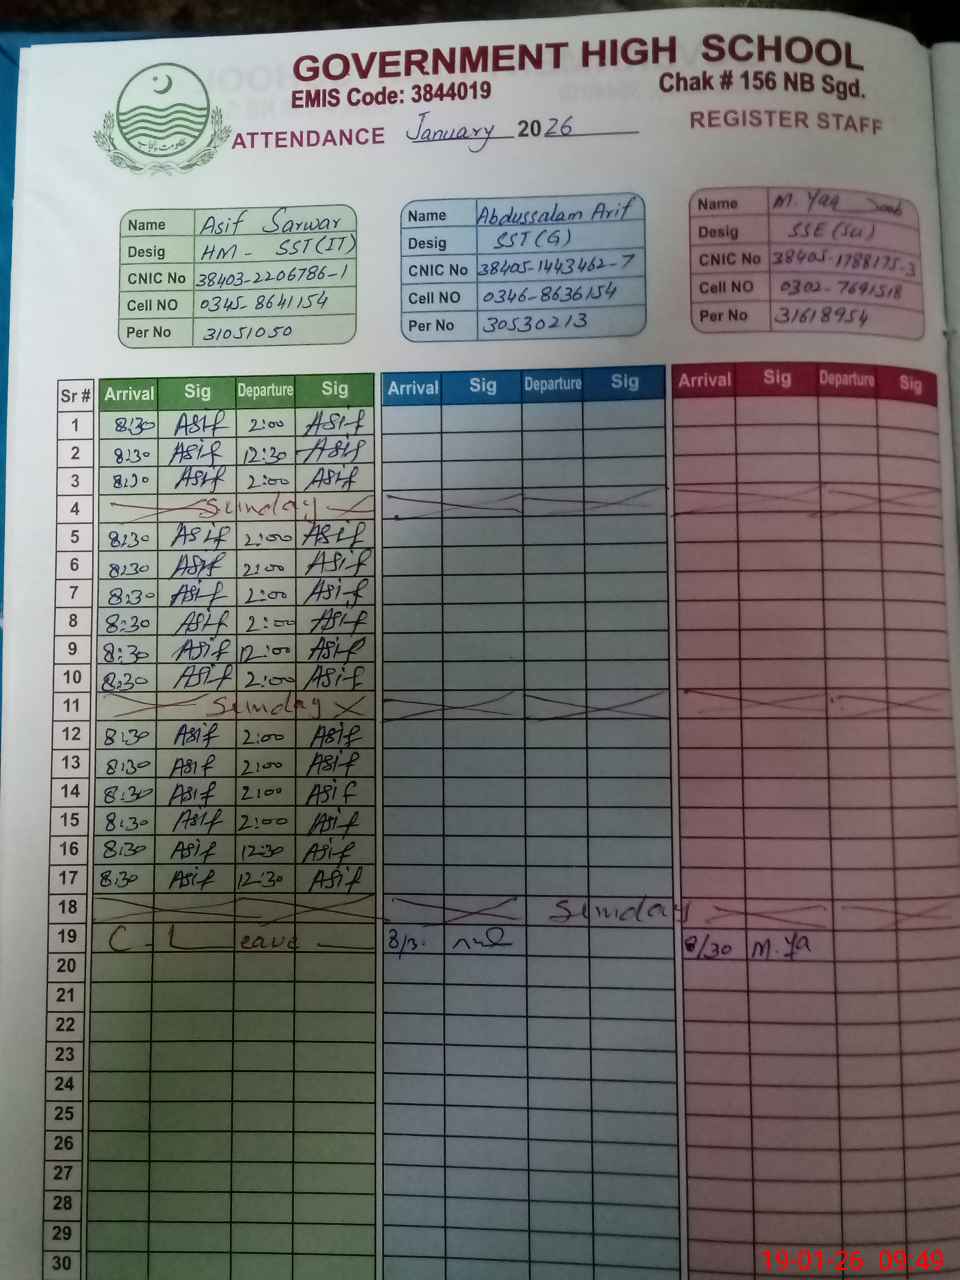 GOVERNMENT HIGH SCHOOL
EMIS Code: 3844019 Chak # 156 NB Sgd.
ATTENDANCE January 2026 REGISTER STAFF
Name Asif Sarwar
Desig HM - SST (IT)
CNIC No 38403-2206786-1
Cell NO 0345-8641154
Per No 31051050
Name Abdussalam Arif
Desig SST (G)
CNIC No 38405-1443462-7
Cell NO 0346-8636154
Per No 30530213
Name M. Yaq
Desig SSE
CNIC No 38405-1788175-3
Cell NO 0302-7691518
Per No 31618954
Sr # Arrival Sig Departure Sig Arrival Sig Departure Sig Arrival Sig Departure Sig
1 8:30 Asif 2:00 Asif
2 8:30 Asif 12:30 Asif
3 8:30 Asif 2:00 Asif
4 Sunday
5 8:30 Asif 2:00 Asif
6 8:30 Asif 2:00 Asif
7 8:30 Asif 2:00 Asif
8 8:30 Asif 2:00 Asif
9 8:30 Asif 12:00 Asif
10 8:30 Asif 2:00 Asif
11 Sunday
12 8:30 Asif 2:00 Asif
13 8:30 Asif 2:00 Asif
14 8:30 Asif 2:00 Asif
15 8:30 Asif 2:00 Asif
16 8:30 Asif 12:30 Asif
17 8:30 Asif 12:30 Asif
18 Sunday
19 C - Leave 8/30 M. Ya
20
21
22
23
24
25
26
27
28
29
30
19-01-26 09:49